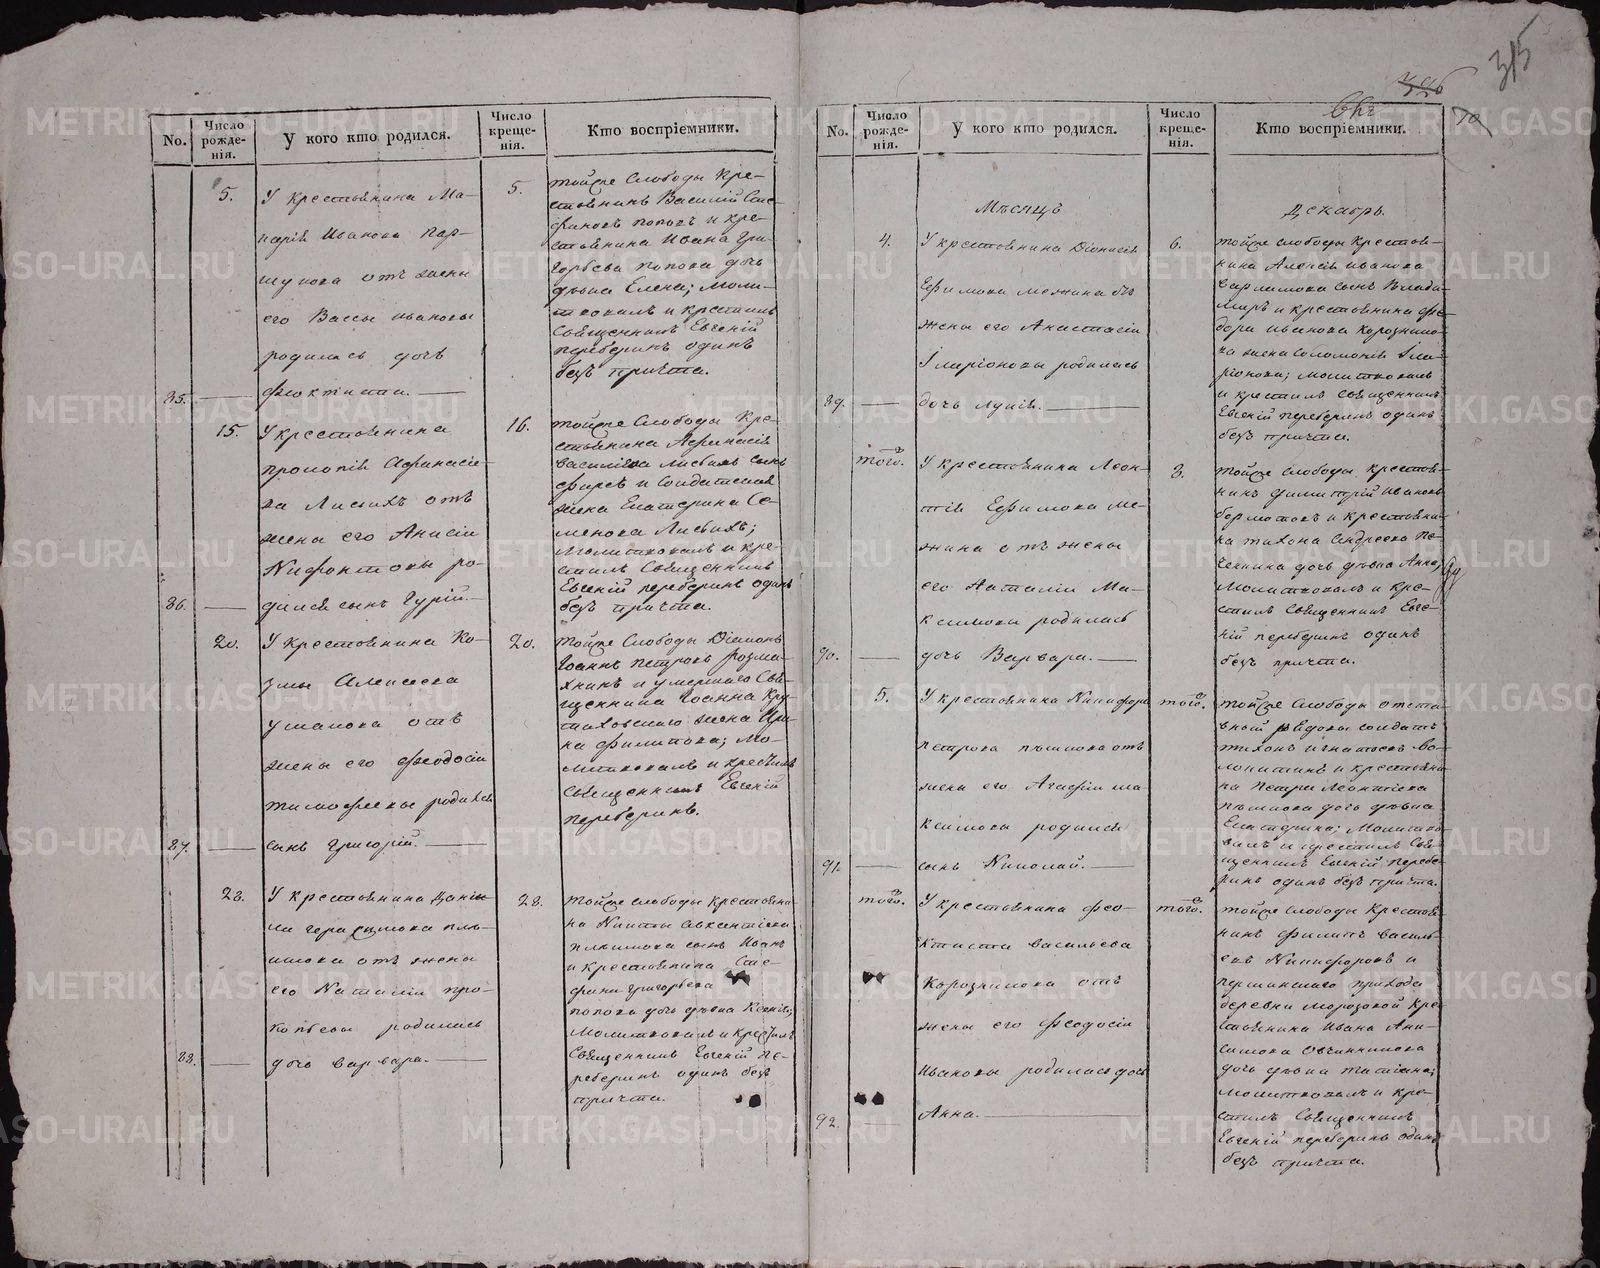 315
70
No.
Число рожде-нія.
У кого кто родился.
Число креще-нія.
Кто воспріемники.
5.
У крестьянина Ма-
карія Иванова Пар-
шукова отъ жены
его Вассы Ивановы
родилась дочь
85.
Феоктиста.
5.
тойже Слободы Кре-
стьянинъ Василій Сте-
фановъ Поповъ и кре-
стьянина Ивана Гри-
горьева Попова дочь
дѣвка Елена; Моли-
твовалъ и крестилъ
Священникъ Евгеній
Переберинъ одинъ
безъ причта.
15.
У крестьянина
Прокопія Афанасье-
ва Лисьихъ отъ
жены его Анисіи
Никфонтовы ро-
86.
дился сынъ Гурій.
16.
тойже Слободы Кре-
стьянина Афанасія
Васильева Лисьихъ сынъ
Фирсъ и Солдатская
жена Екатерина Се-
менова Лисьихъ;
Молитвовалъ и кре-
стилъ Священникъ
Евгеній Переберинъ одинъ
безъ причта.
20.
У крестьянина Ко-
змы Алексеева
Ушакова отъ
жены его Феодосіи
Тимофеевы родился
87.
сынъ Григорій.
20.
тойже Слободы Діаконъ
Іоаннъ Петровъ
и умершаго Свя-
щенника Іоанна
жена Ири-
на Филипова; Мо-
литвовалъ и крестилъ
Священникъ Евгеній
Переберинъ.
28.
У крестьянина Дани-
ла Герасимова
отъ жены
его Наталіи Про-
копьевы родилась
88.
дочь Варвара.
28.
тойже Слободы Крестьяни-
на Никиты Авксентіева
сынъ Иванъ
и крестьянина Сте-
фана Григорьева
Попова дочь дѣвка Ксенія;
Молитвовалъ и крестилъ
Священникъ Евгеній Пе-
реберинъ одинъ безъ
причта.
No.
Число рожде-нія.
У кого кто родился.
Число креще-нія.
Кто воспріемники.
Мѣсяцъ
Декабрь.
4.
У крестьянина Діонисія
Ефимова Межина отъ
жены его Анастасіи
Іларіоновы родилась
89.
дочь Лукія.
6.
тойже слободы Крестья-
нина Алексія Иванова
Варламова сынъ Влади-
міръ и крестьянина Фе-
дора Иванова
жена Соломонія Ила-
ріонова; молитвовалъ
и крестилъ Священникъ
Евгеній Переберинъ одинъ
безъ причта.
того.
У крестьянина Леон-
тія Ефимова Ме-
жина отъ жены
его Наталіи Ма-
ксимовы родилась
90.
дочь Варвара.
8.
тойже Слободы Крестья-
нинъ Димитрій Ивановъ
и Крестьяни-
на Тихона Андреева
дочь дѣвка Анна;
Молитвовалъ и кре-
стилъ Священникъ Евге-
ній Переберинъ одинъ
безъ причта.
5.
У крестьянина Никифора
Петрова отъ
жены его Агафіи Ма-
ксимова родился
91.
сынъ Николай.
тогоже.
тойже Слободы отста-
вной солдатъ
Тихонъ Игнатьевъ
и крестьяни-
на Петра Леонтіева
дочь дѣвка
Екатерина; Молитво-
валъ и крестилъ Свя-
щенникъ Евгеній Перебе-
ринъ одинъ безъ причта.
тогоже.
У крестьянина Фео-
ктиста Васильева
отъ
жены его Феодосіи
Ивановы родилась дочь
92.
Анна.
тогоже.
тойже Слободы Крестья-
нинъ Филипъ Василь-
евъ Никифоровъ и
прихода
деревни Морозовой Кре-
стьянина Ивана Ани-
симова Овчинникова
дочь дѣвка Татіана;
молитвовалъ и кре-
стилъ Священникъ
Евгеній Переберинъ одинъ
безъ причта.
METRIKI.GASO-URAL.RU